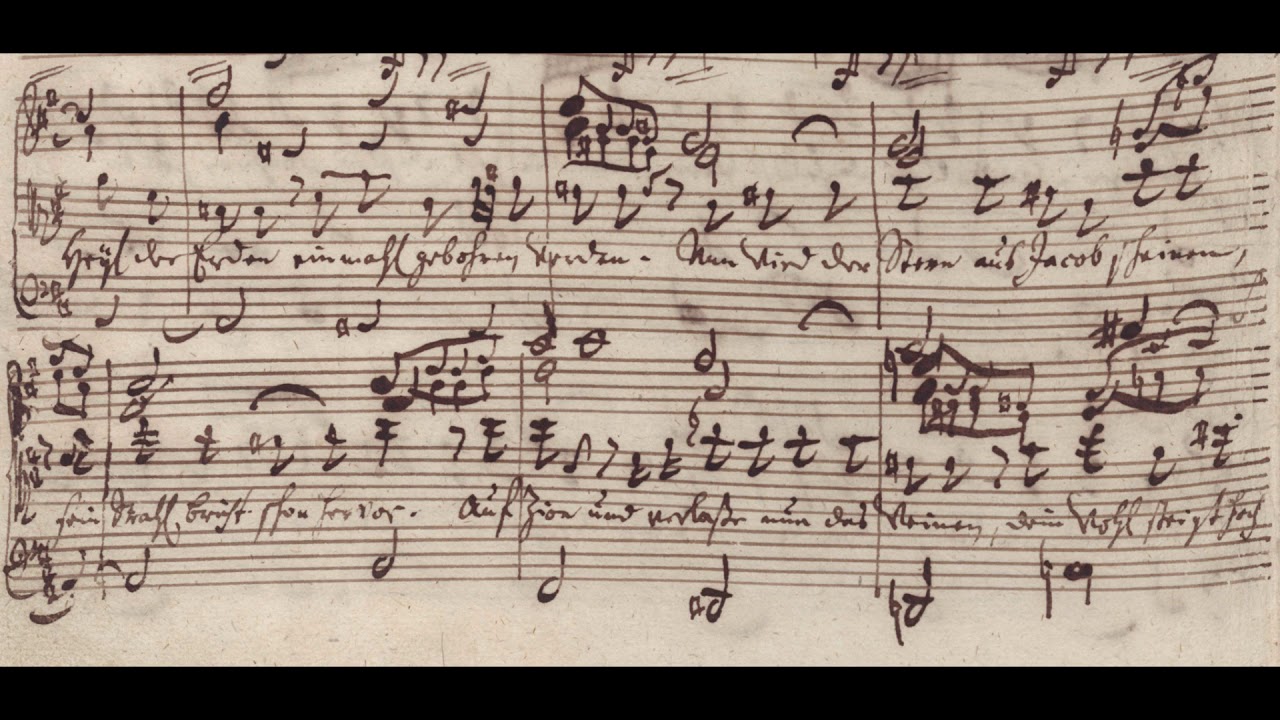 Heyl der Erden einmahl gebohren werden. Nun wird der Stern aus Jacob scheinen,
sein Strahl bricht schon hervor. Auf Zion und verlaße nun das Weinen, dein Wohl steigt hoch